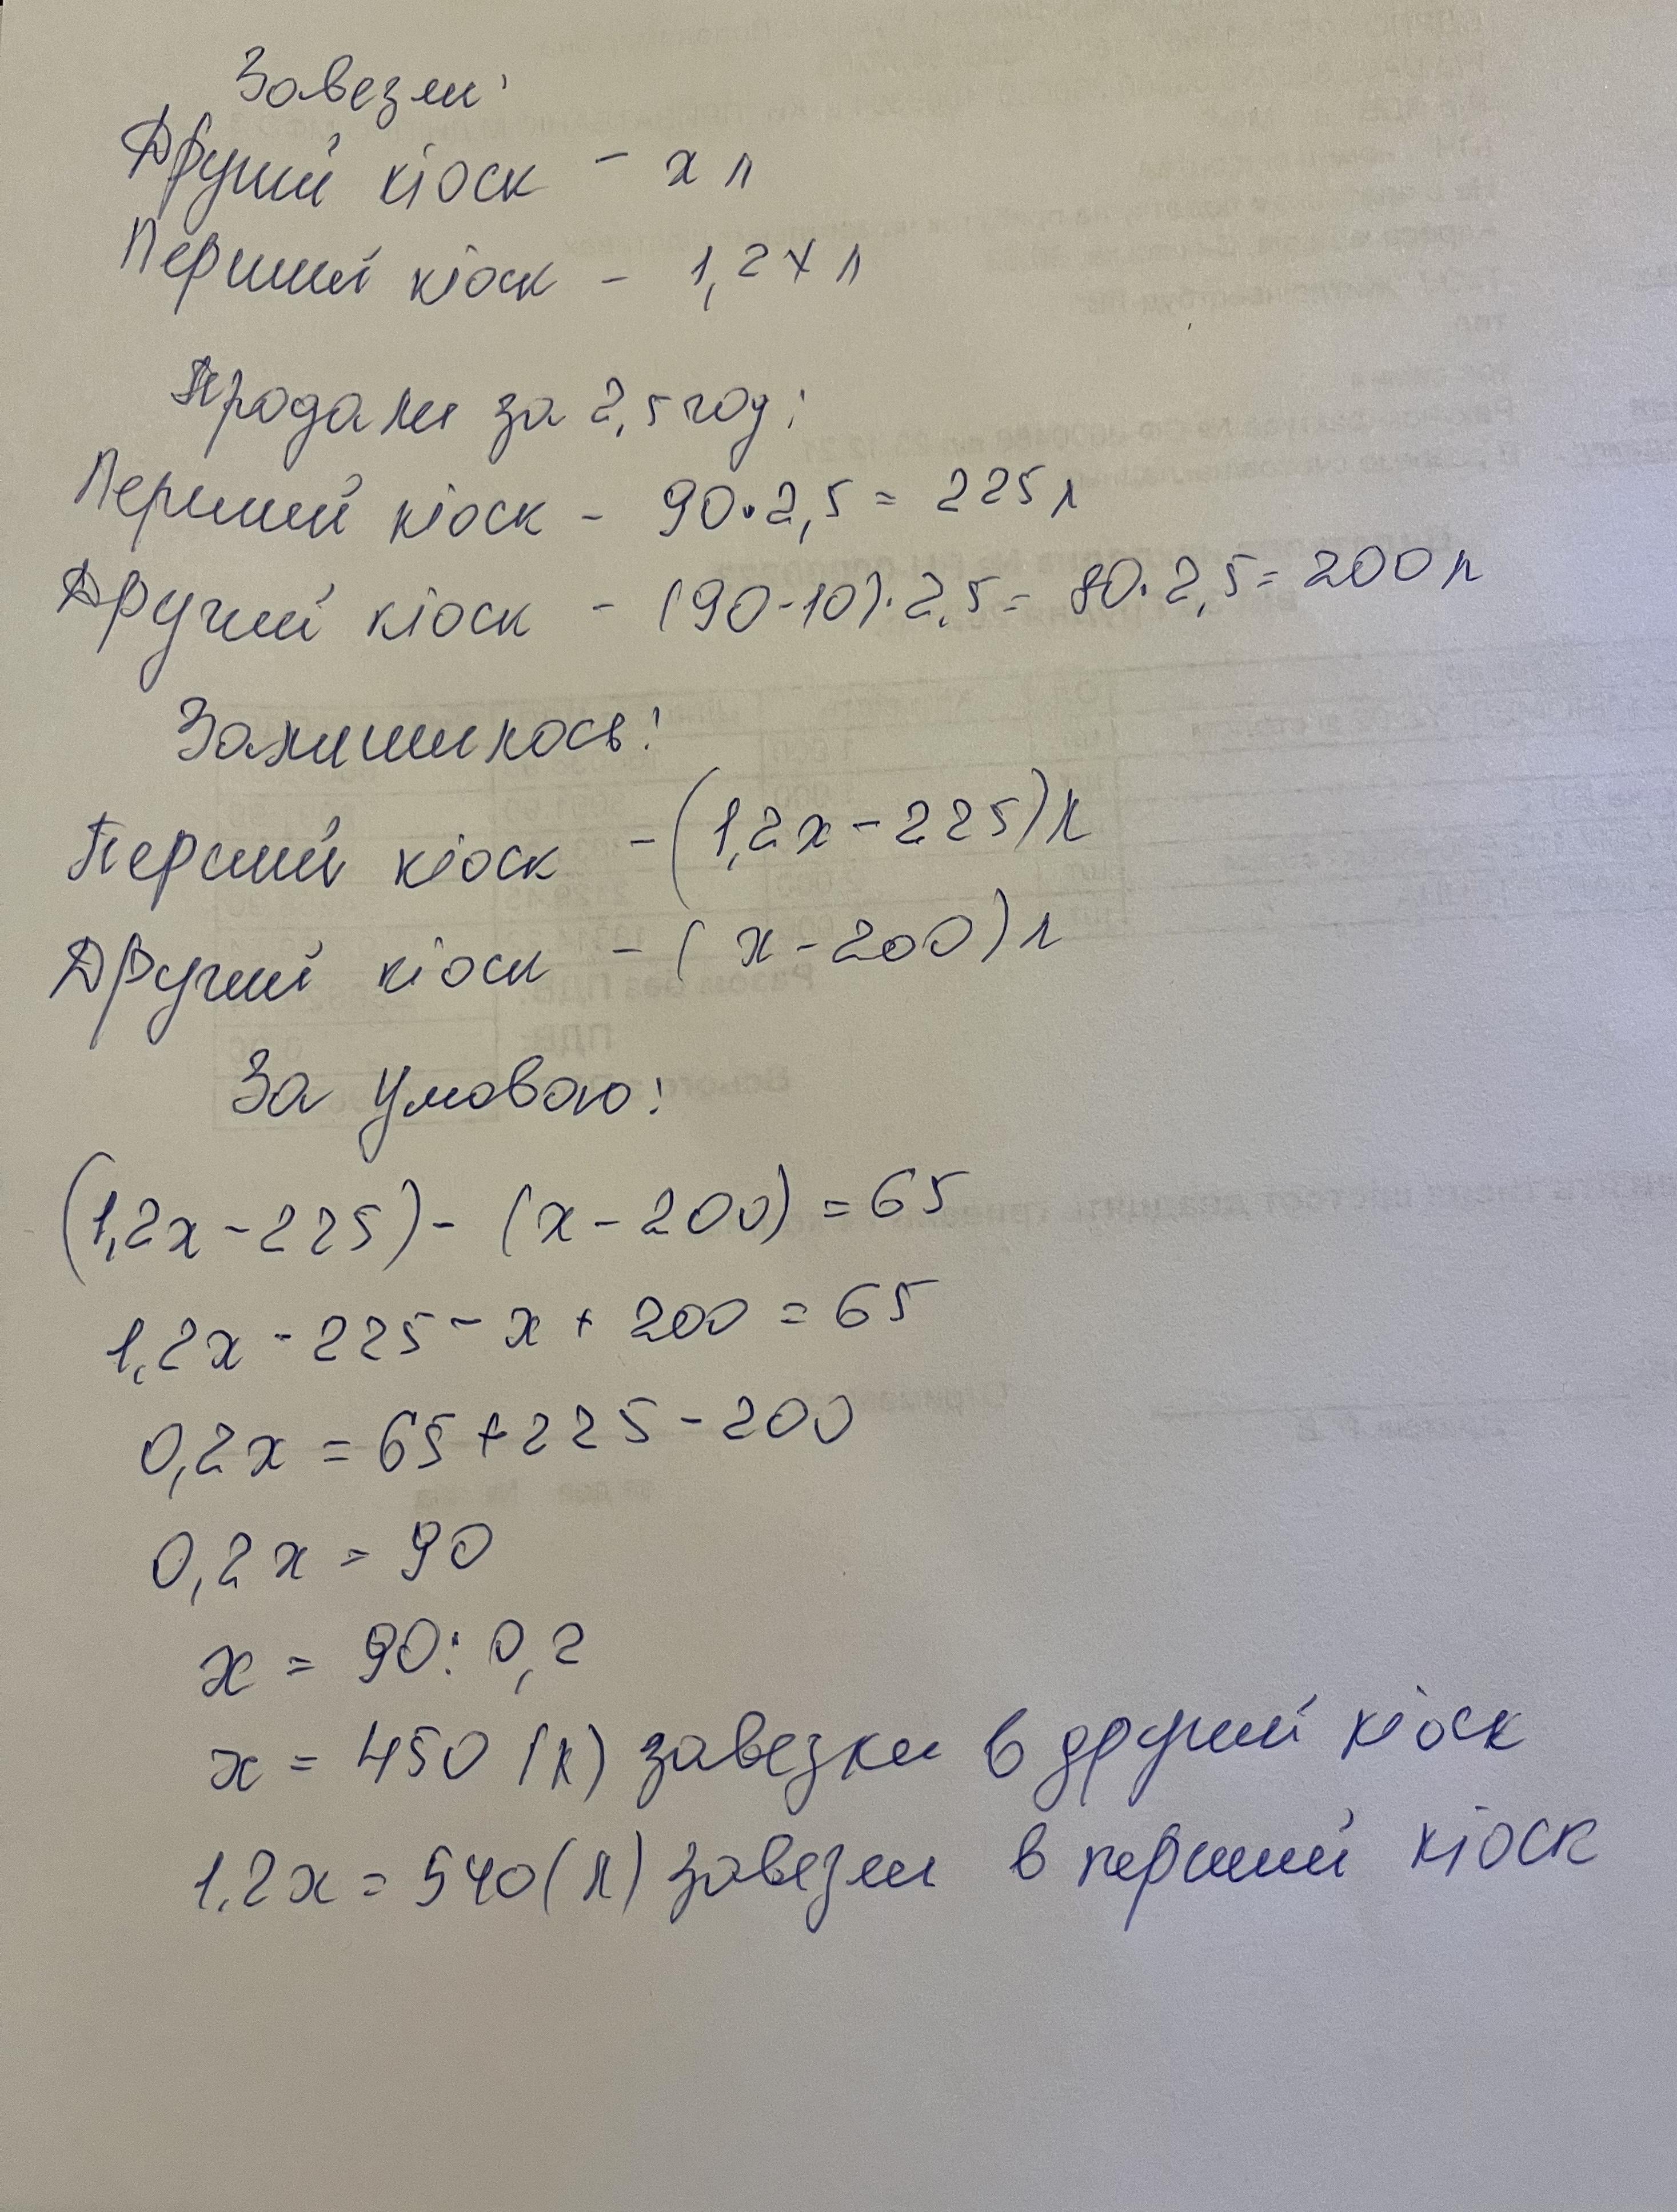 Завезли:
Другий кіоск - x л
Перший кіоск - 1,2x л
Продали за 2,5 год:
Перший кіоск - 90·2,5 = 225 л
Другий кіоск - (90-10)·2,5 = 80·2,5 = 200 л
Залишилось:
Перший кіоск - (1,2x - 225) л
Другий кіоск - (x - 200) л
За умовою:
(1,2x - 225) - (x - 200) = 65
1,2x - 225 - x + 200 = 65
0,2x = 65 + 225 - 200
0,2x = 90
x = 90 : 0,2
x = 450 (л) завезли в другий кіоск
1,2x = 540 (л) завезли в перший кіоск